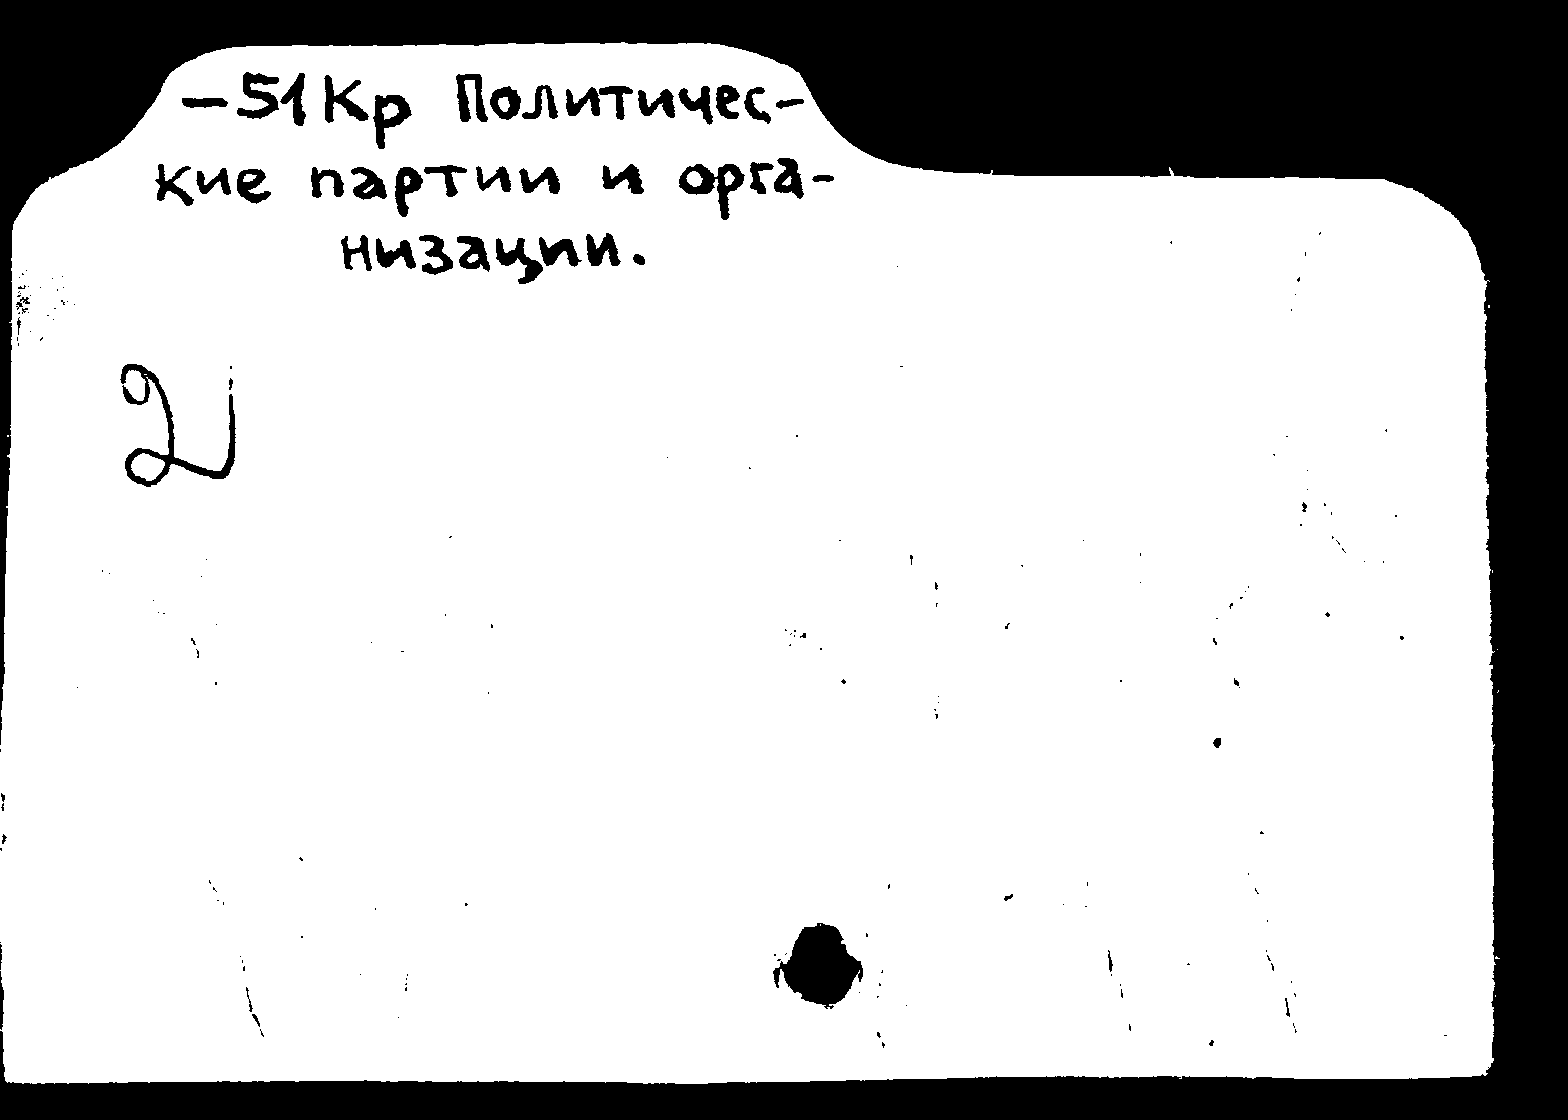 -51Кр Политичес-
кие партии и орга-
низации.
2